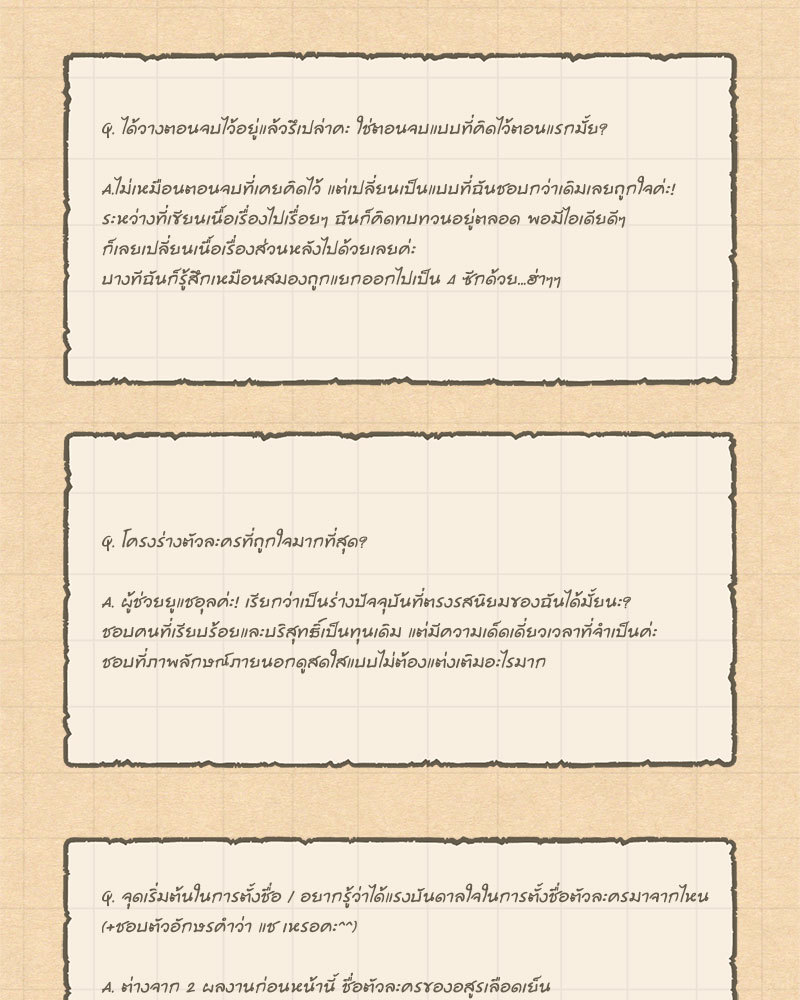 Q. ได้วางตอนจบไว้อยู่แล้วรึเปล่าคะ ใช่ตอนจบแบบที่คิดไว้ตอนแรกมั้ย?
A.ไม่เหมือนตอนจบที่เคยคิดไว้ แต่เปลี่ยนเป็นแบบที่ฉันชอบกว่าเดิมเลยถูกใจค่ะ!
ระหว่างที่เขียนเนื้อเรื่องไปเรื่อยๆ ฉันก็คิดทบทวนอยู่ตลอด พอมีไอเดียดีๆ
ก็เลยเปลี่ยนเนื้อเรื่องส่วนหลังไปด้วยเลยค่ะ
บางทีฉันก็รู้สึกเหมือนสมองถูกแยกออกไปเป็น 4 ซีกด้วย...ฮ่าๆๆ
Q. โครงร่างตัวละครที่ถูกใจมากที่สุด?
A. ผู้ช่วยยูแชอุลค่ะ! เรียกว่าเป็นร่างปัจจุบันที่ตรงรสนิยมของฉันได้มั้ยนะ?
ชอบคนที่เรียบร้อยและบริสุทธิ์เป็นทุนเดิม แต่มีความเด็ดเดี่ยวเวลาที่จำเป็นค่ะ
ชอบที่ภาพลักษณ์ภายนอกดูสดใสแบบไม่ต้องแต่งเติมอะไรมาก
Q. จุดเริ่มต้นในการตั้งชื่อ / อยากรู้ว่าได้แรงบันดาลใจในการตั้งชื่อตัวละครมาจากไหน
(+ชอบตัวอักษรคำว่า แช เหรอคะ^^)
A. ต่างจาก 2 ผลงานก่อนหน้านี้ ชื่อตัวละครของอสูรเลือดเย็น